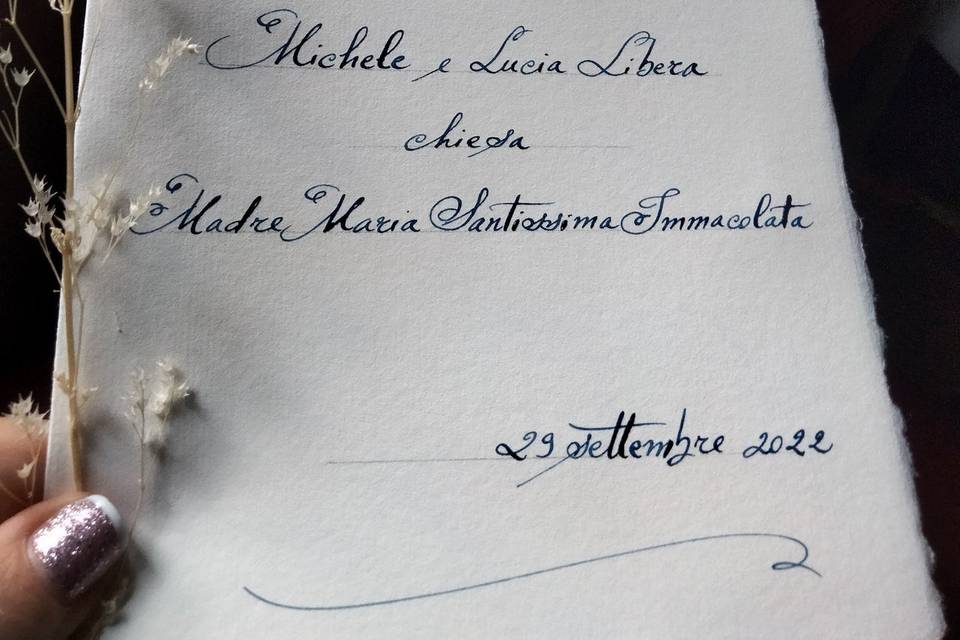 Michele e Lucia Libera
chiesa
Madre Maria Santissima Immacolata
29 settembre 2022